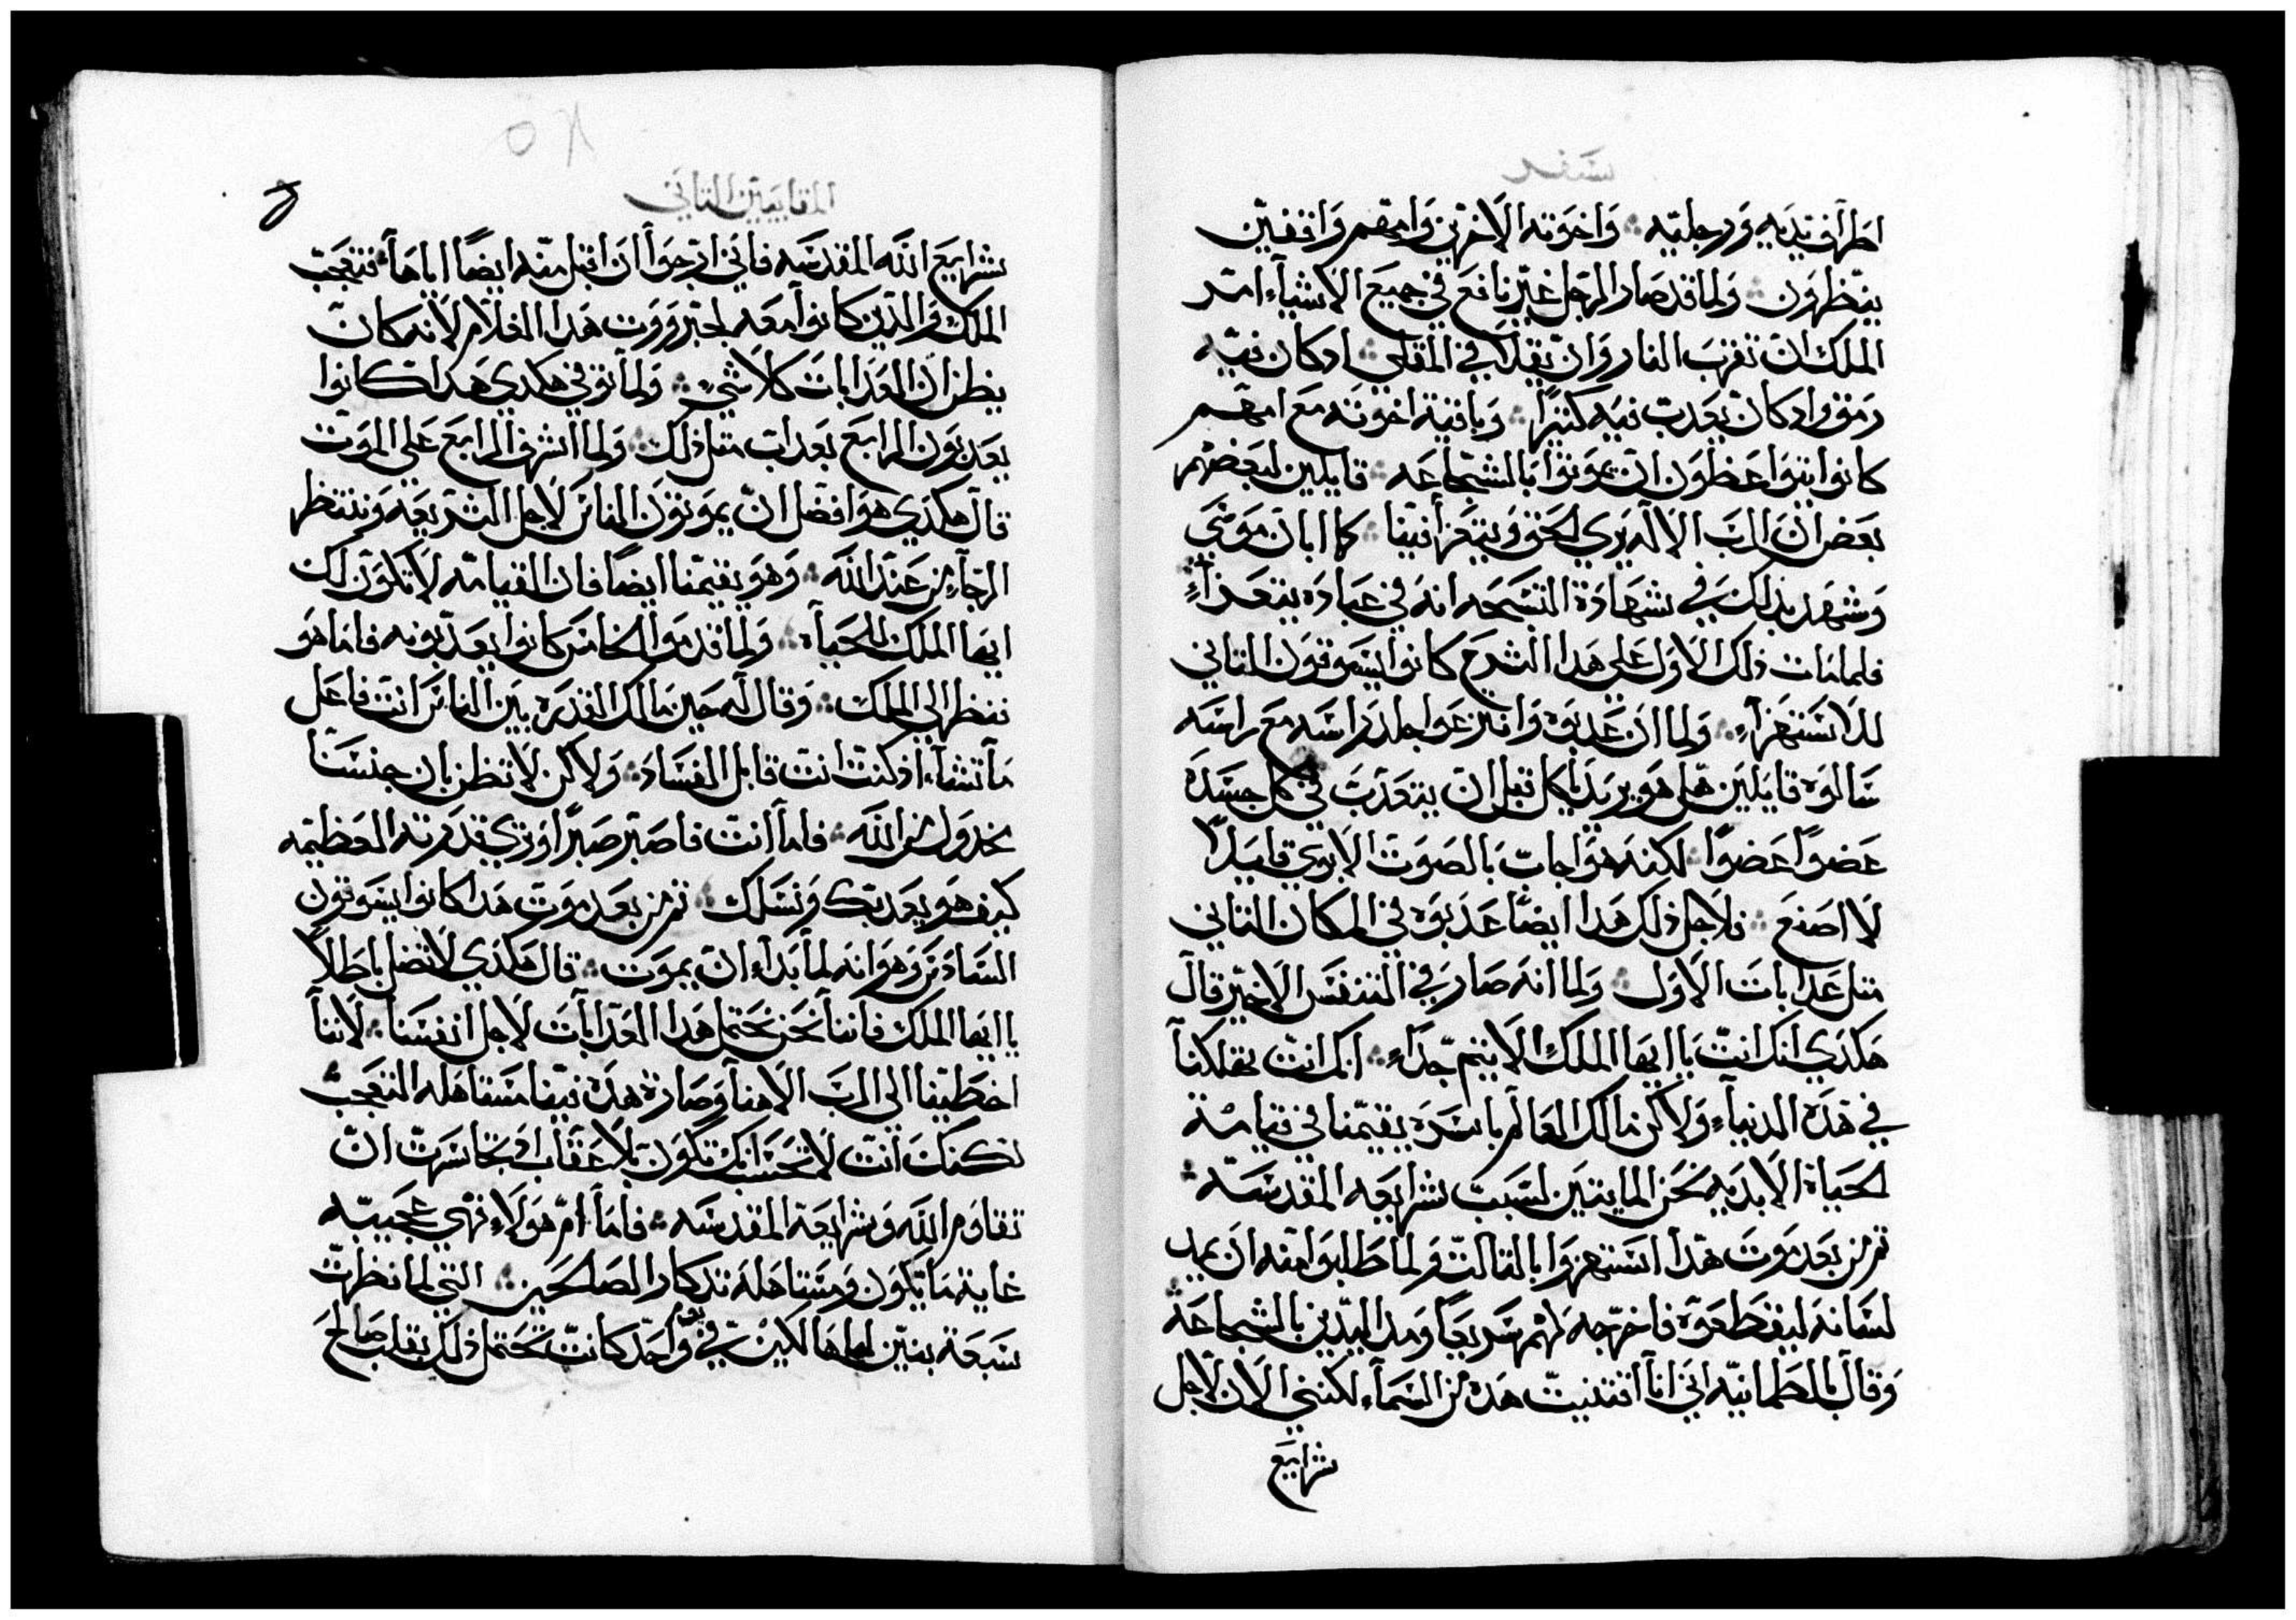 سفر
اطراف يديه ورجليه ؞ واخوته الاخرين وامهم واقفين
ينظرون ؞ ولما قد صار الرجل غير نافع في جميع الاشياء امر
الملك ان تقرب النار وان يقلا في المقلي ؞ اد كان فيه
رمق واد كان يعدب فيه كثيرًا ؞ وباقية اخوته مع امهم
كانوا يتواعظون ان يموتوا بالشجاعه ؞ قايلين لبعضهم
بعض ان الرب الاله يري الحق ويتعزا فينا ؞ كما ابان موسَى
وشهد بذلك في شهادة التسبحه انه في عباده يتعزاءٍ
فلما مات ذلك الاول علي هدا الشرح كانوا يسوقون التاني
للاستهزاءِ ؞ ولما ان عدبوه وانتزعوا جلد راسه مع راسه
سَالوه قايلين هل هو يريد ياكل قبل ان يتعدب في كل جسده
عضواً عضواً ؞ لكنه هو اجاب بالصوت الابوي قايلاً
لا اصنع ؞ فلاجل ذلك هدا ايضًا عدبوه في المكان التاني
متل عدابات الاول ؞ ولما انه صار في التنفس الاخير قال
هكدي انك انت يا ايها الملك الاتيم جداءِ ؞ انك انت تهلكنا
في هده الدنياءِ ولاكن مالك العالم باسره يقيمنا في قيامة
الحياة الابديه نحن المايتين لسبب شرايعه المقدسه ؞
تم من بعد موت هدا استهزوا بالتالت ولما طلبوا منه ان يمد
لسانه ليقطعوه فاخرجه لهم سريعًا ومد اليدين بالشجاعه ؞
وقال بالطمانيه اني انا اقتنيت هده من السماءِ لكنني الان لاجل
شرايع
المقابيين التاني
شرايع الله المقدسه فاني ارجوا ان اقبل منه ايضًا اياها ؞ فتعجب
الملك والدين كانوا معه لجبرووت هدا الغلام لانه كان
يظن ان العدابات كلا شي ؞ ولما توفي هكدي هدا كانوا
يعدبون الرابع بعداب متل ذلك ؞ ولما اشرف الرابع علي الموت
قال هكدي هو افضل ان يموتون الناس لاجل الشريعه وننتظر
الرجاءِ من عند الله ؞ وهو يقيمنا ايضًا فان القيامه لا تكون لك
ايها الملك للحياه ؞ ولما قدموا الخامس كانوا يعدبونه فاما هو
فنظر الي الملك ؞ وقال له حين مالك القدره بين الناس انت فاعل
ما تشاء اذ كنت انت قابل الفساد ؞ ولاكن لا تظن بان جنسنا
مخدول من الله ؞ فاما انت فاصبر صبرًا وتري قدرته العظيمه
كيف هو يعدبك ونسلك ؞ تم من بعد موت هدا كانوا يسوقون
السادس وهو انه لما بداءِ ان يموت ؞ قال هكدي لا تضل باطلاً
يا ايها الملك فاننا نحن نحتمل هدا العدابات لاجل انفسنا ؞ لاننا
اخطينا الي الرب الاهنا وصارة هده فينا مستاهله التعجب ؞
لكنك انت لا تحسب انك تكون بلا عقاب اد تجاسرت ان
تقاوم الله وشرايعة المقدسه ؞ فاما ام هولاءِ فهي عجيبه
غاية ما يكون ومستاهله تدكار الصالحين ؞ التي لما نظرت
سبعة بنين لها هالكين في يوم واحد كانت تحتمل ذلك بقلب صالح